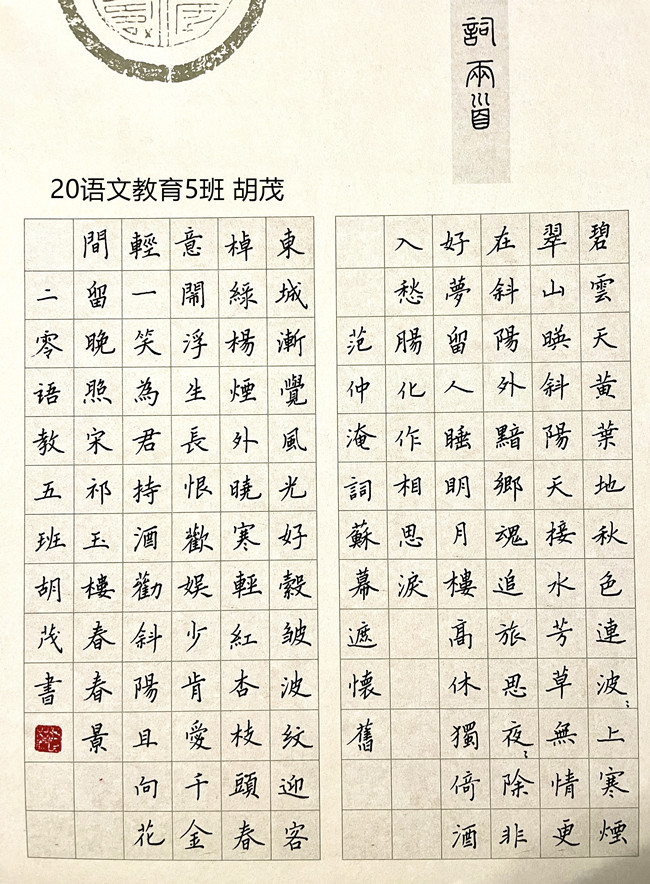 詞兩首
20语文教育5班 胡茂
碧雲天黃葉地秋色連波〻上寒煙
翠山暎斜陽天接水芳草無情更
在斜陽外黯鄉魂追旅思夜〻除非
好夢留人睡明月樓高休獨倚酒
入愁腸化作相思淚
范仲淹詞蘇幕遮懷舊
東城漸覺風光好縠皺波紋迎客
棹綠楊煙外曉寒輕紅杏枝頭春
意鬧浮生長恨歡娛少肯愛千金
輕一笑為君持酒勸斜陽且向花
間留晚照宋祁玉樓春春景
二零語教五班胡茂書